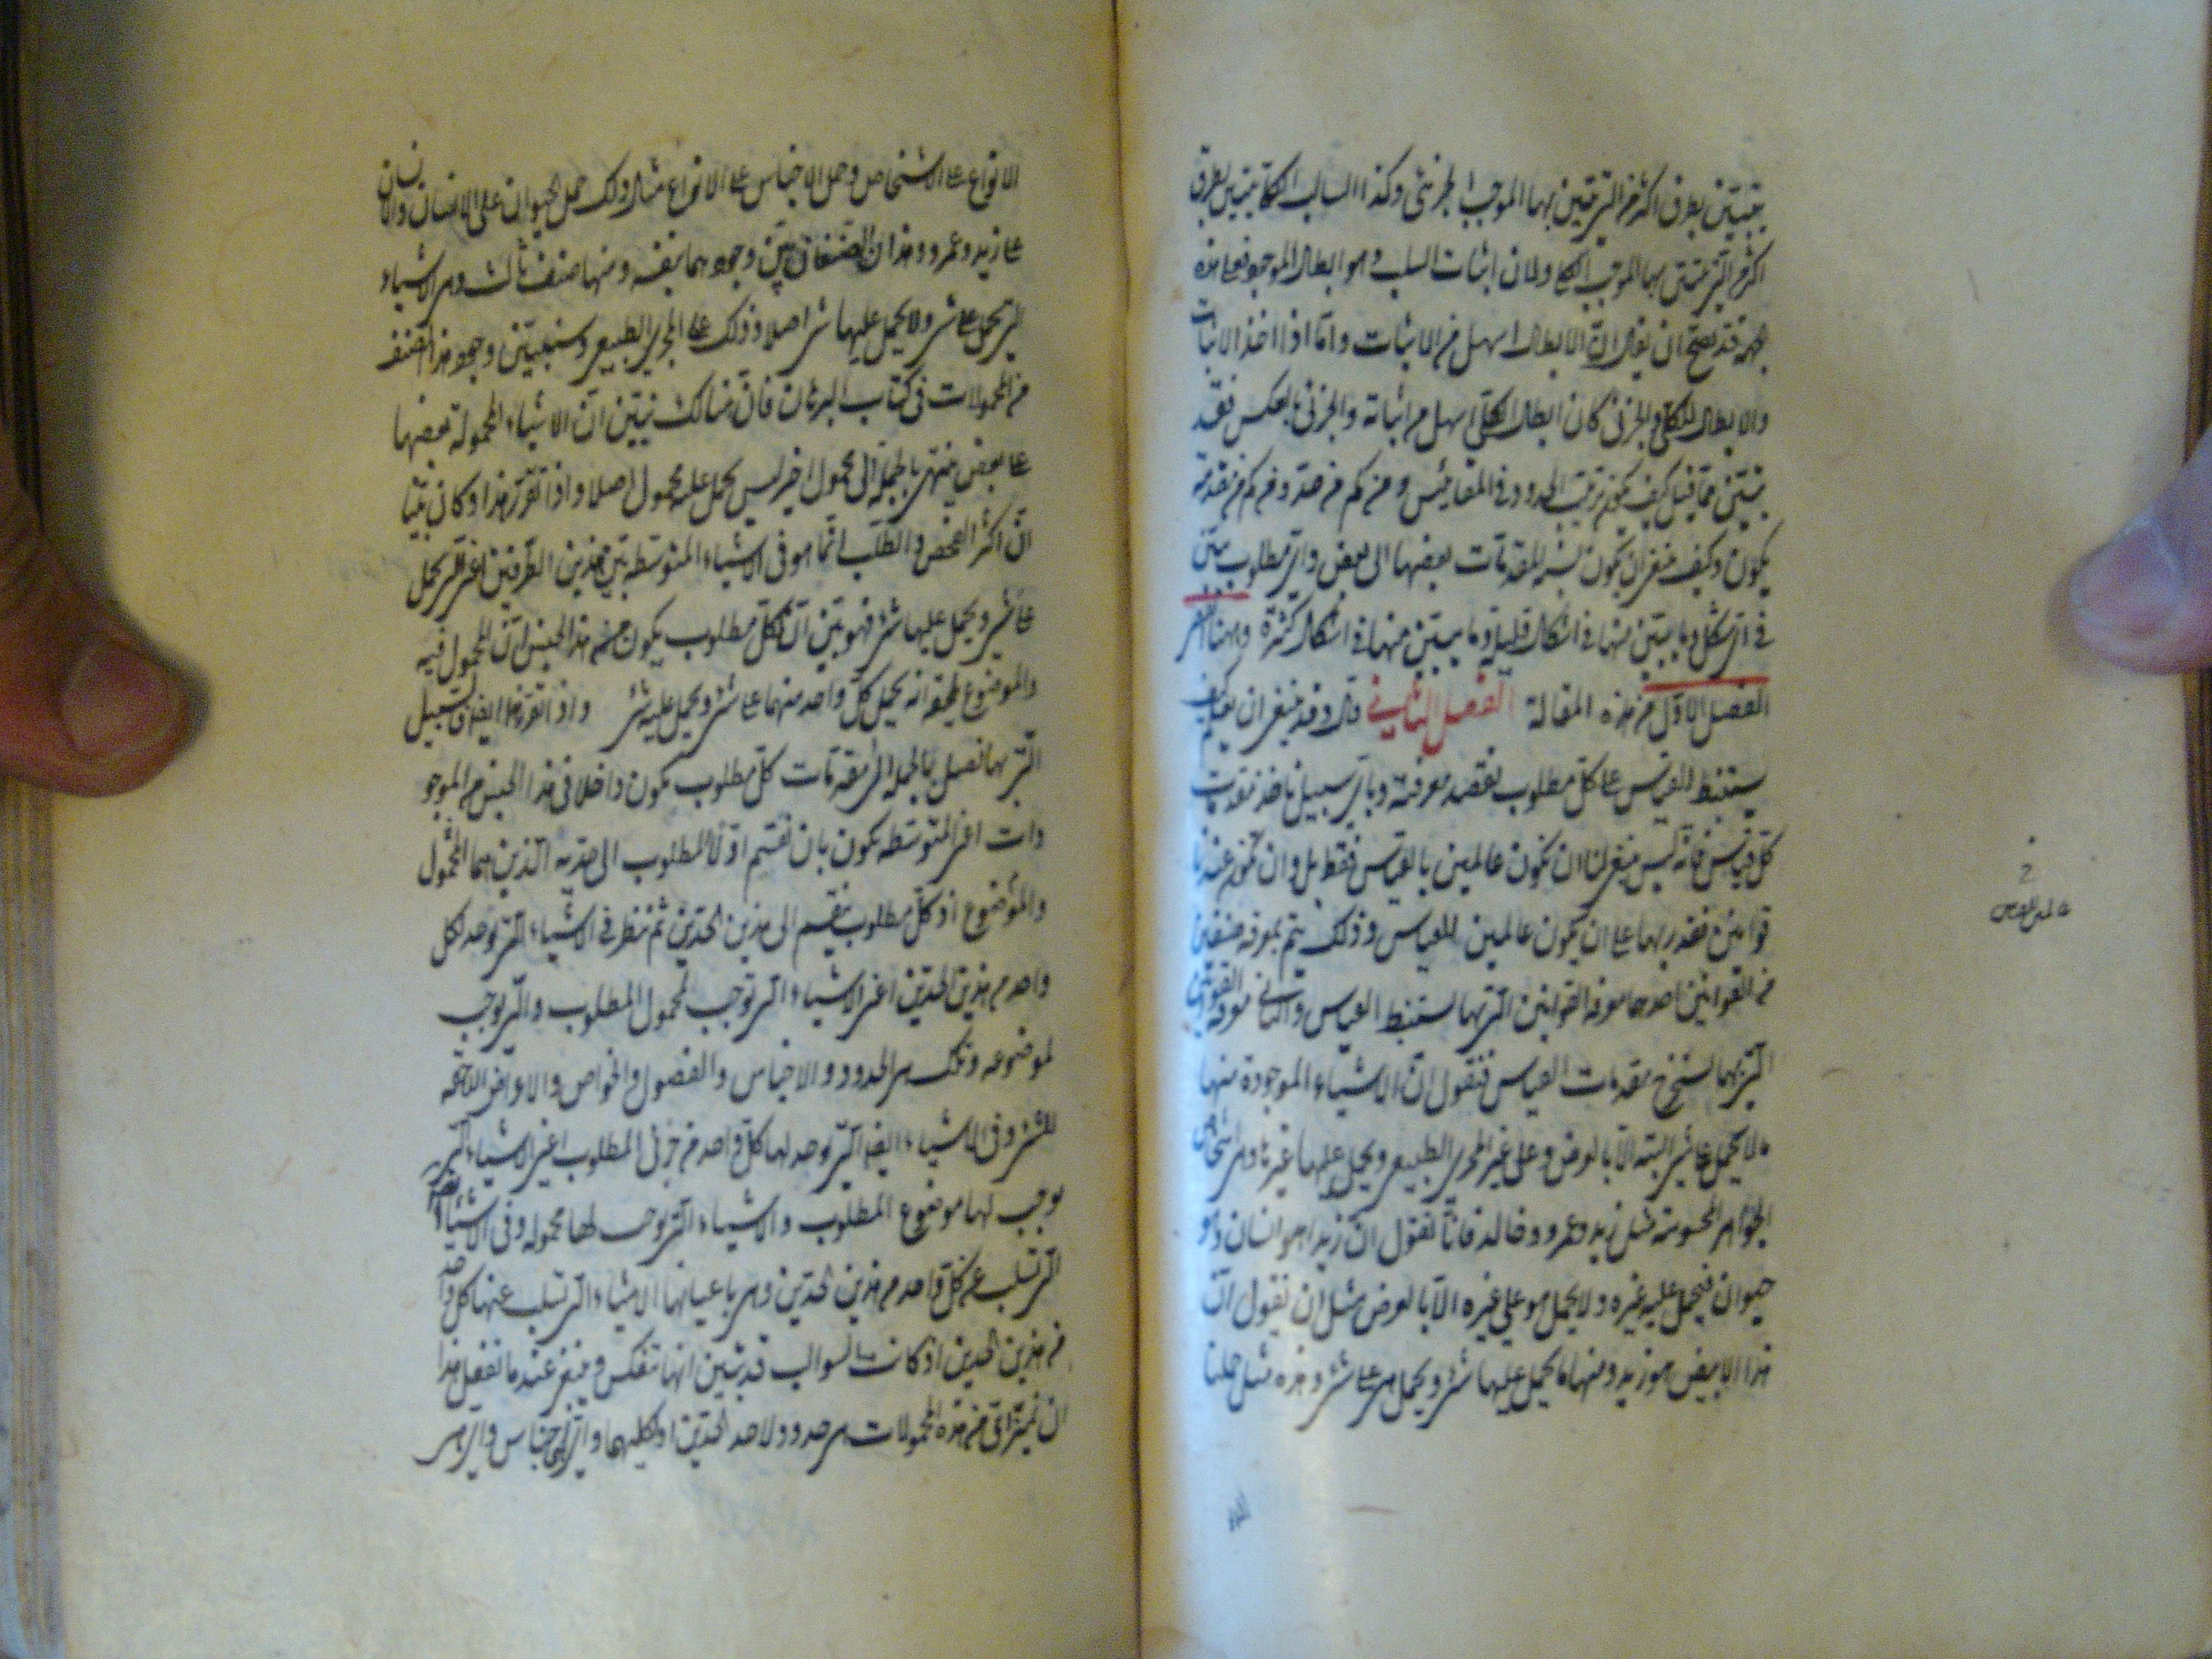 يتبين بطرق اكثر من التي يتبين بها الموجب الجزئي وكذا السالب الكلي يتبين بطرق
اكثر من التي يتبين بها الموجب الكلي ولان اثبات السلب هو ابطال الموجب فعلى هذه
الجهة قد يصح ان يقال ان الابطال اسهل من الاثبات واما اذا اخذ الاثبات
والابطال للكلي والجزئي كان ابطال الكلي اسهل من اثباته والجزئي بالعكس فقد
تبين مما قيل كيف يكون ترتيب الحدود في المقاييس ومن كم من حد ومن كم من مقدمة
يكون وكيف ينبغي ان يكون نسبة المقدمات بعضها الى بعض واي مطلوب يتبين
في اي شكل وما يتبين منها في اشكال قليلة وما يتبين منها في اشكال كثيرة وههنا انقضى
الفصل الاول من هذه المقالة الفصل الثاني قال وقد ينبغي ان نعلم كيف
يستنبط القياس على كل مطلوب نقصد معرفته وباي سبيل ناخذ مقدمات
كل قياس فانه ليس ينبغي لنا ان نكون عالمين بالقياس فقط بل وان تكون عندنا
قوانين نقدر بها على ان نكون عاملين للقياس وذلك يتم بمعرفة صنفين
من القوانين احدهما معرفة القوانين التي بها نستنبط القياس والثاني معرفة القوانين
التي بها نستخرج مقدمات القياس فنقول ان الاشياء الموجودة منها
ما لا يحمل على شي البتة الا بالعرض وعلى غير المجرى الطبيعي ويحمل عليها غيرها وهي اشخاص
الجواهر المحسوسة مثل زيد وعمرو وخالد فانا نقول ان زيدا هو انسان وهو
حيوان فيحمل عليه غيره ولا يحمل هو على غيره الا بالعرض مثل ان نقول ان
هذا الابيض هو زيد ومنها ما يحمل عليها شي ويحمل هي على شي وهذه مثل حملنا
الانواع على الاشخاص وحمل الاجناس على الانواع مثال ذلك حمل الحيوان على الانسان والانسان
على زيد وعمرو وهذان الصنفان بين وجودهما بنفسه ومنها صنف ثالث وهي الاشياء
التي تحمل على شي ولا يحمل عليها شي اصلا وذلك على المجرى الطبيعي وسنبين وجود هذا الصنف
من المحمولات في كتاب البرهان فان هنالك نبين ان الاشياء المحمولة بعضها
على بعض ينتهي بالجملة الى محمول اخير ليس يحمل عليه محمول اصلا واذا تقرر هذا وكان بينا
ان اكثر الفحص والطلب انما هو في الاشياء المتوسطة بين هذين الطرفين اعني التي تحمل
على شي ويحمل عليها شي فهو بين ان كل مطلوب يكون من هذا الجنس ان المحمول فيه
والموضوع يلحقه انه يحمل كل واحد منهما على شي ويحمل عليه شي واذا تقرر هذا ايضا فالسبيل
التي بها نصل بالجملة الى مقدمات كل مطلوب يكون داخلا في هذا الجنس من الموجو
دات اعني المتوسطة يكون بان نقسم اولا المطلوب الى حديه الذين هما المحمول
والموضوع اذ كل مطلوب ينقسم الى هذين الحدين ثم ننظر في الاشياء التي توجد لكل
واحد من هذين الحدين اعني الاشياء التي توجب لمحمول المطلوب والتي توجب
لموضوعه وتلك هي الحدود والاجناس والفصول والخواص والاعراض اللاحقة
للشي وفي الاشياء ايضا التي يوجد لها كل واحد من جزئي المطلوب اعني الاشياء التي
يوجب لها موضوع المطلوب والاشياء التي يوجب لها محموله وفي الاشياء ايضا
التي تسلب عن كل واحد من هذين الحدين وهي باعيانها الاشياء التي تسلب عنها كل واحد
من هذين الحدين اذ كانت السوالب قد تبين انها تنعكس وينبغي عندما نفعل هذا
ان نميز اي من هذه المحمولات هي حدود لاحد الحدين او لكليهما واي هي اجناس واي هي